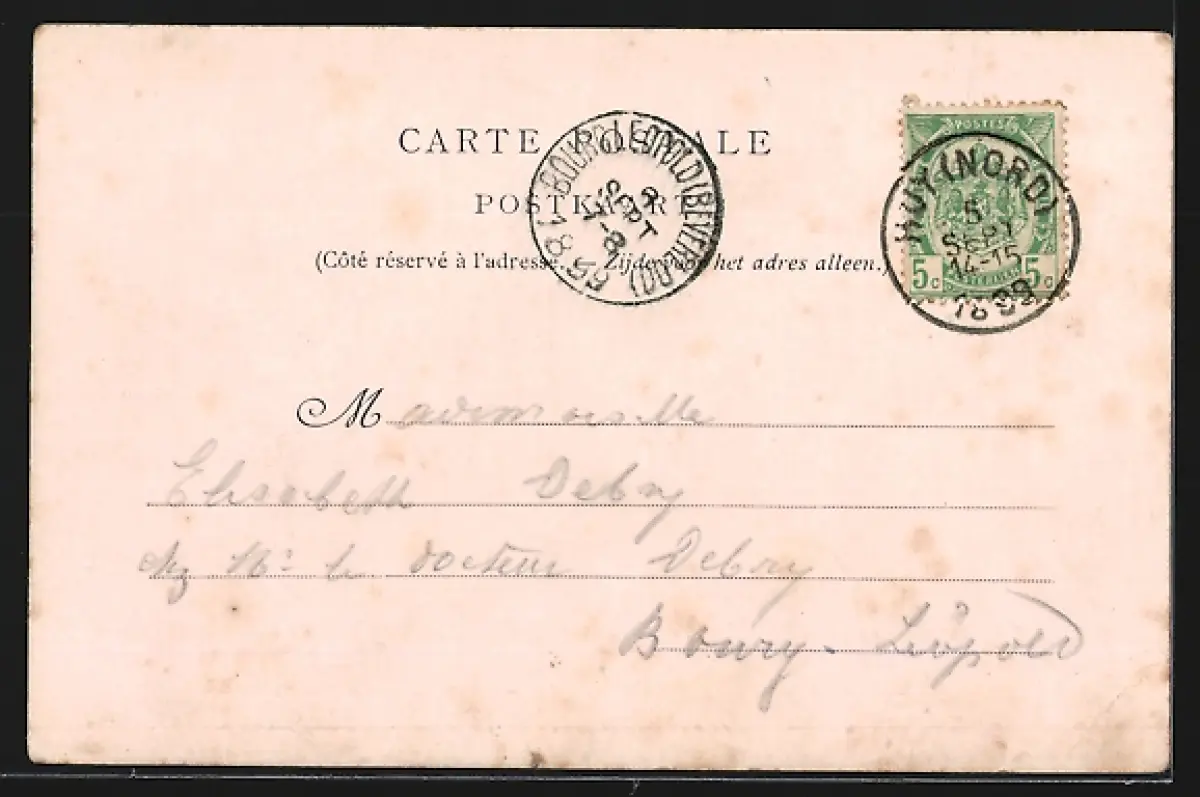 CARTE POSTALE
POSTKAART
(Côté réservé à l'adresse. — Zijde voor het adres alleen.)
BOURG LEOPOLD (BEVERLOO)
SEPT
7-8
1899
POSTES
HUY (NORD)
5
SEPT
14-15
1899
5c 5c
Mademoiselle
Elisabeth Debry
chez Mr le docteur Debry
Bourg-Léopold